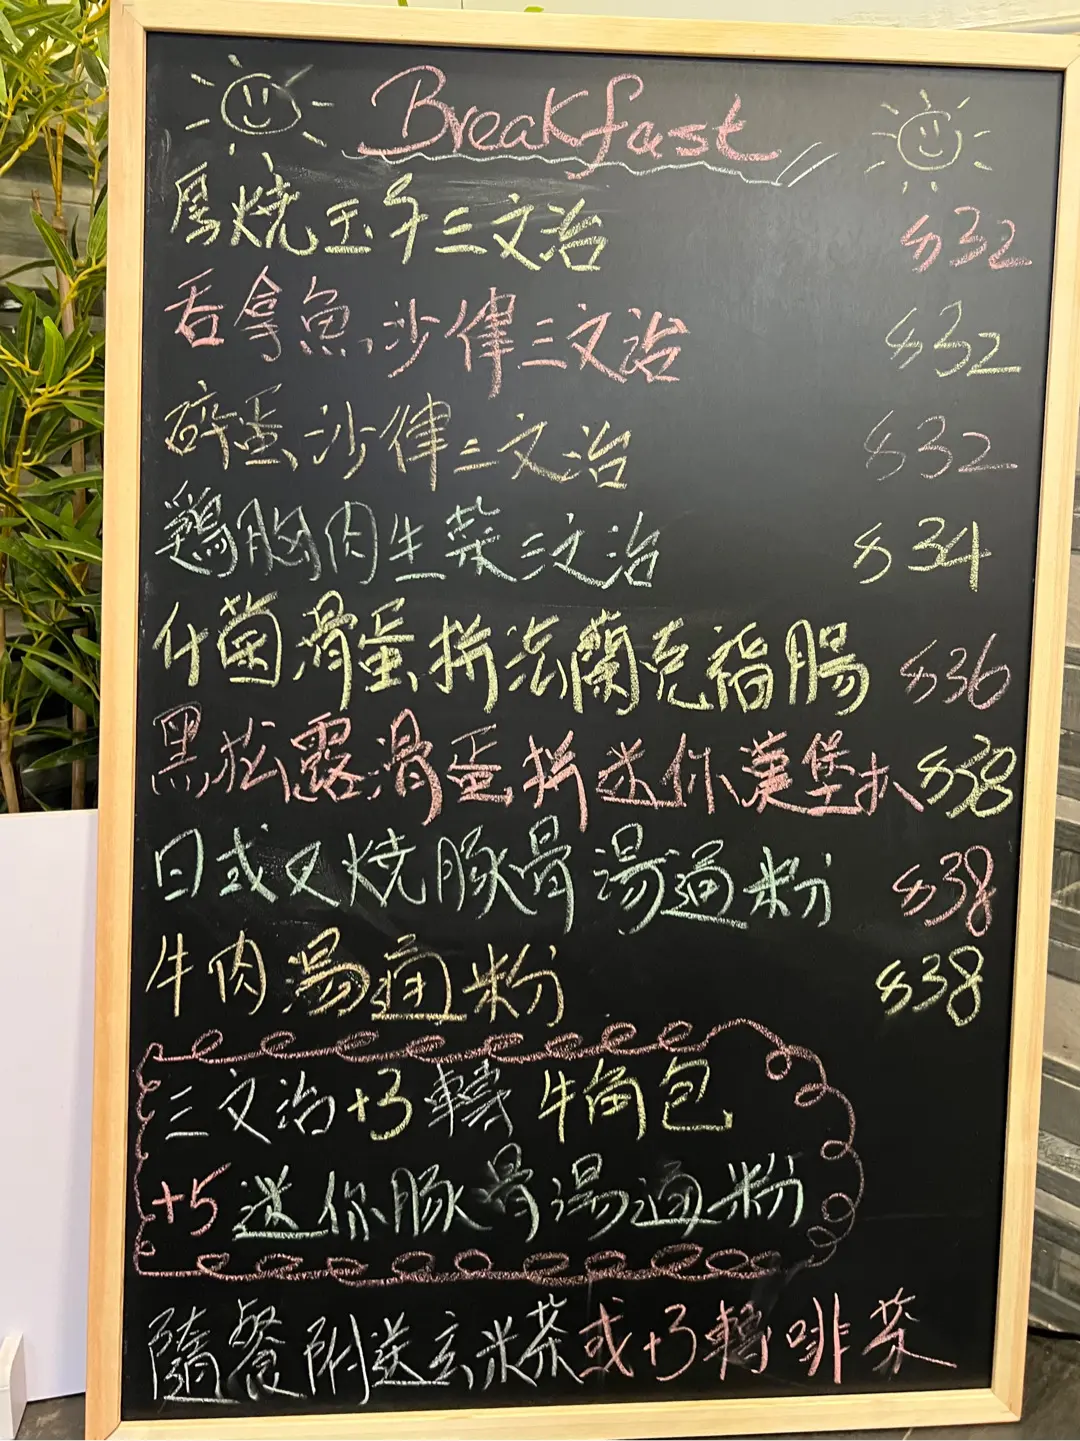 Breakfast
厚燒玉子三文治 $32
吞拿魚沙律三文治 $32
碎蛋沙律三文治 $32
鷄胸肉生菜三文治 $34
什菌滑蛋拼法蘭克福腸 $36
黑松露滑蛋拼迷你漢堡扒 $38
日式叉燒豚骨湯通粉 $38
牛肉湯通粉 $38
三文治+3轉牛角包
+5迷你豚骨湯通粉
隨餐附送玄米茶或+3轉啡茶